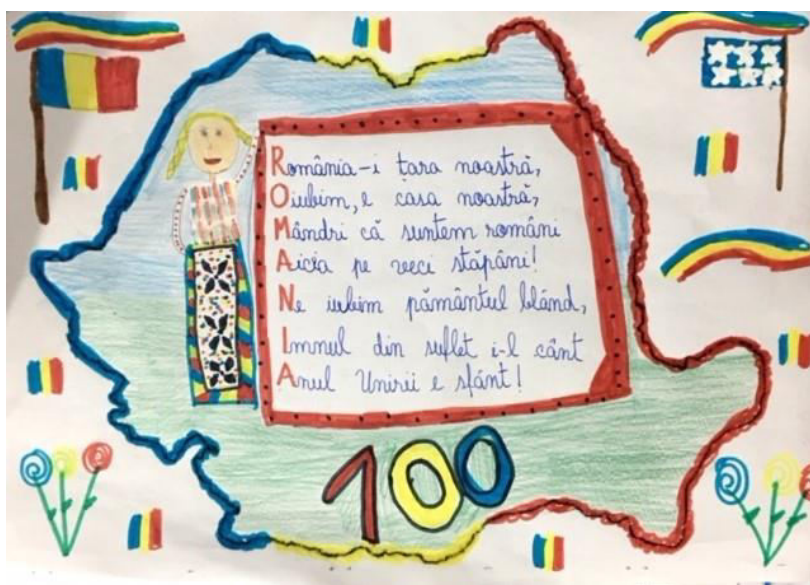 România-i țara noastră,
O iubim, e casa noastră,
Mândri că suntem români
Aicia pe veci stăpâni!
Ne iubim pământul blând,
Imnul din suflet i-l cânt
Anul Unirii e sfânt!
100